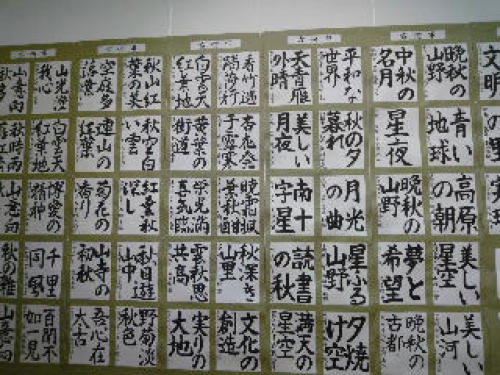 文明
晩秋の
山野
中秋の
名月
平和な
世界
外晴
看竹過
白雲天
紅葉地
秋山紅
葉の美
空庭多
落葉
山光澄
我心
山意向
秋多
の里
青い
地球
星夜
秋の夕
暮れ
美しい
月夜
黄葉の
街道
秋空白
い雲
連山の
紅葉
白雲天
紅葉地
秋時雨
高原
の朝
晩秋の
山野
月光
の曲
南十
字星
紅葉秋
深し
菊花の
香り
博愛の
精神
山意向
美しい
星空
夢と
希望
星ふる
山野
読書
の秋
秋深き
山里
雲秋思
共高
秋日遊
山中
山寺の
初秋
千里
同風
秋の雅
美しい
山河
晩秋の
古都
夕焼
け空
満天の
星空
文化の
創造
実りの
大地
野菊淡
秋色
吾心在
太古
百聞不
如一見
山意向